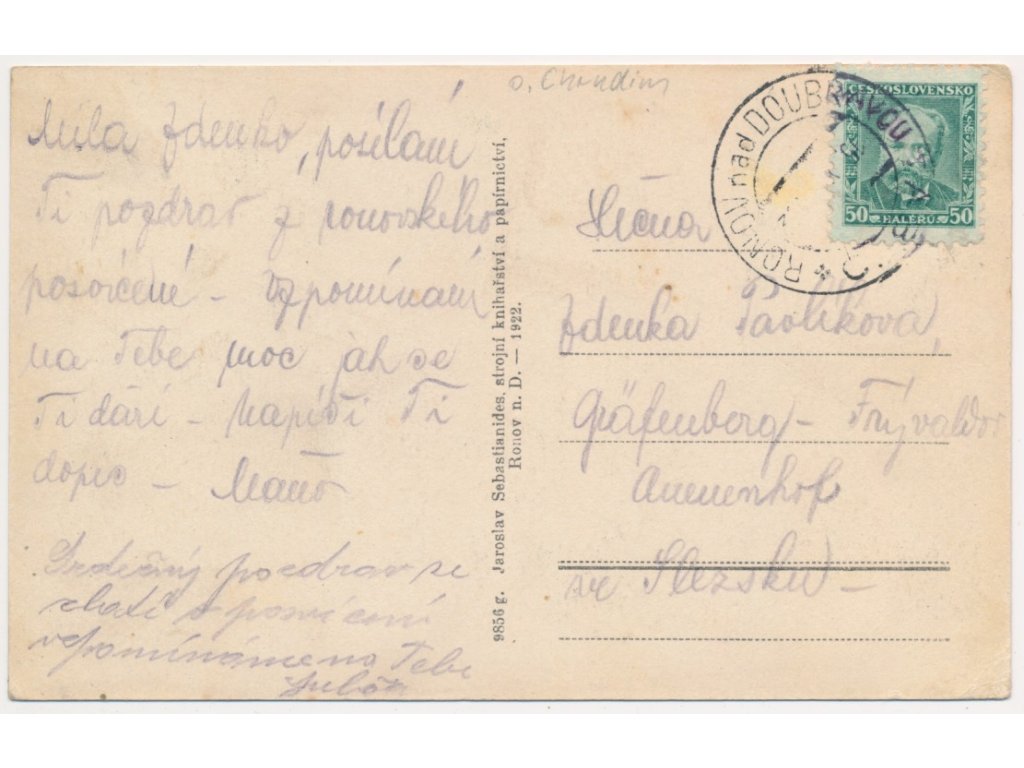 o. Chrudim
Milá Zdenko, posílám
Ti pozdrav z ronovského
posvícení – Vzpomínám
na Tebe moc jak se
Ti daří – Napíši Ti
dopis –
Srdečný pozdrav ze
posvícení
vzpomínáme na Tebe
9856 g. Jaroslav Sebastianides, strojní knihařství a papírnictví,
Ronov n. D. — 1922.
RONOV nad DOUBRAVOU
ČESKOSLOVENSKO
50 HALÉRŮ 50
Slečna
Zdenka Pavlíková,
Gräfenberg – Frývaldov
Annenhof
ve Slezsku –